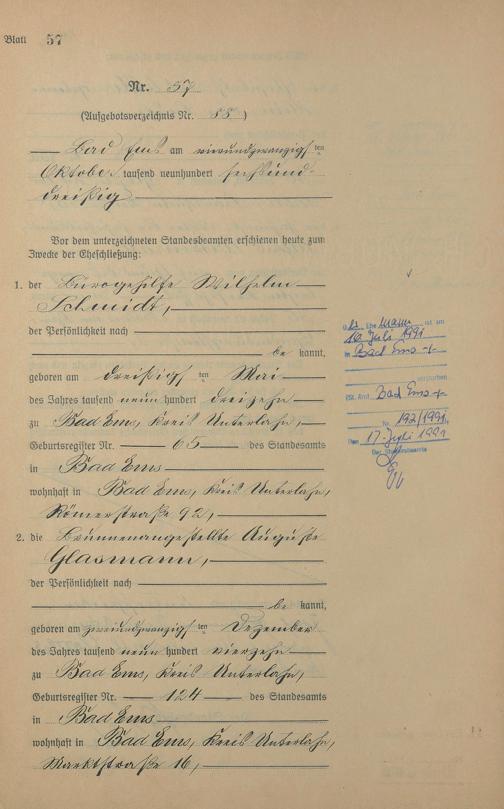 Blatt 57
Nr. 57
(Aufgebotsverzeichnis Nr. 58)
Bad Ems am vierundzwanzigsten
Oktober tausend neunhundert sechsund-
dreißig
Vor dem unterzeichneten Standesbeamten erschienen heute zum
Zwecke der Eheschließung:
1. der Bürogehilfe Wilhelm
Schmidt,
der Persönlichkeit nach
be kannt,
geboren am dreißigsten Mai
des Jahres tausend neun hundert dreizehn
zu Bad Ems, Kreis Unterlahn,
Geburtsregister Nr. 65 des Standesamts
in Bad Ems
wohnhaft in Bad Ems, Kreis Unterlahn,
Römerstraße 92,
2. die Brunnenangestellte Auguste
Glasmann,
der Persönlichkeit nach
be kannt,
geboren am zweiundzwanzigsten Dezember
des Jahres tausend neun hundert vierzehn
zu Bad Ems, Kreis Unterlahn,
Geburtsregister Nr. 124 des Standesamts
in Bad Ems
wohnhaft in Bad Ems, Kreis Unterlahn,
Marktstraße 16,
Ehemann ist am
16. Juli 1991
in Bad Ems
verstorben
Bad Ems
Nr. 192/1991
Den 17. Juli 1991
Der Standesbeamte